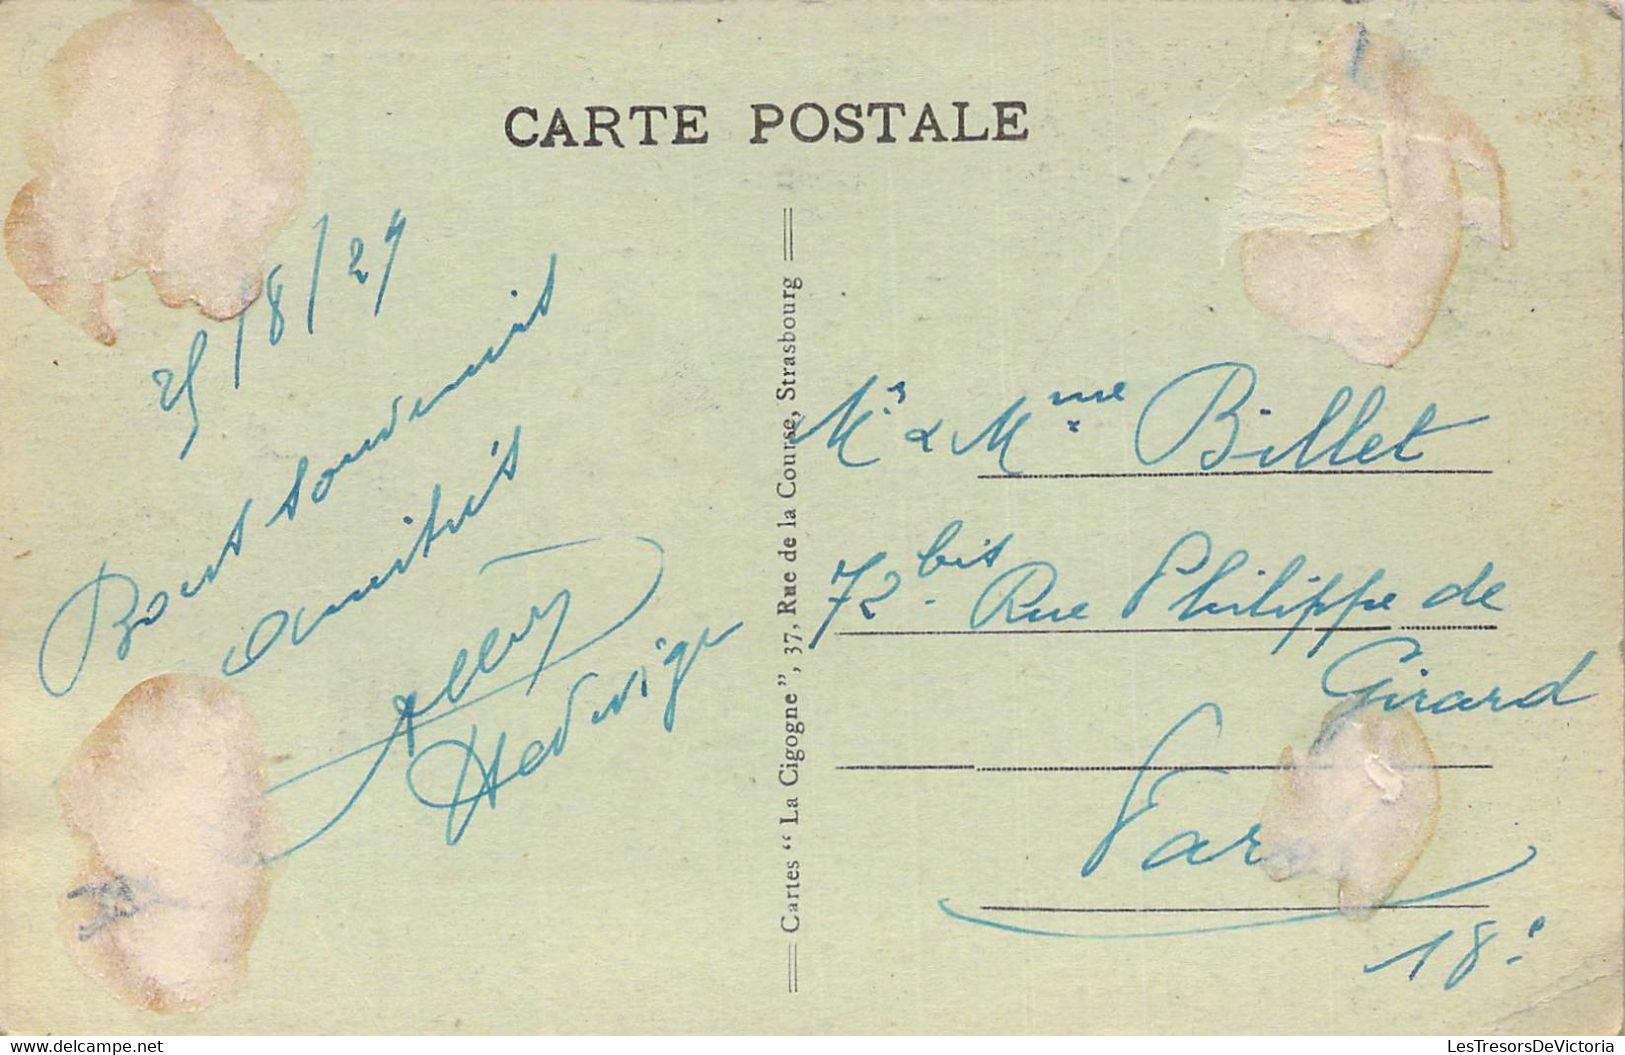 CARTE POSTALE
25/8/29
Bons souvenirs
amitiés
Hedwige
Cartes “ La Cigogne ”, 37, Rue de la Course, Strasbourg
Mr & Mme Billet
72 bis Rue Philippe de
Girard
Paris
18e
LesTresorsDeVictoria
delcampe.net